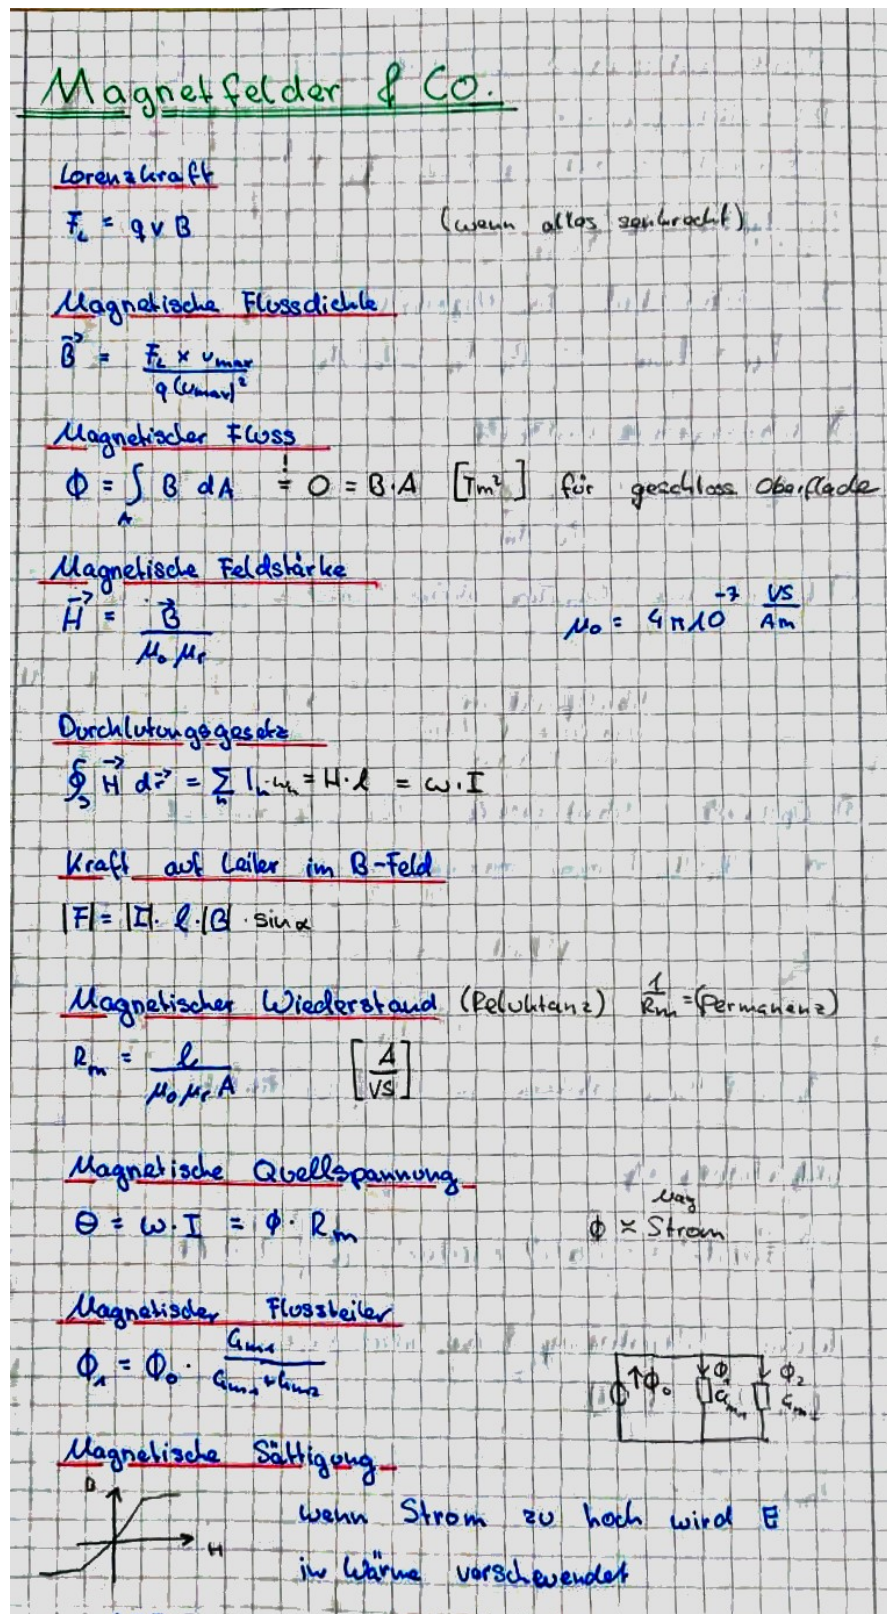 Magnetfelder & Co.
Lorenzkraft
F_L = q v B (wenn alles senkrecht)
Magnetische Flussdichte
B⃗ = F_L × v_max / q (v_max)²
Magnetischer Fluss
Φ = ∫_A B dA =! 0 = B·A [Tm²] für geschloss. Oberfläche
Magnetische Feldstärke
H⃗ = B⃗ / μ₀ μ_r μ₀ = 4π10⁻⁷ VS/Am
Durchlutungsgesetz
∮_S H⃗ dr⃗ = Σ_n I_n·w_n = H·l = ω·I
Kraft auf Leiter im B-Feld
|F| = |I|· l·|B| · sin α
Magnetischer Wiederstand (Reluktanz) 1/R_m = (Permanenz)
R_m = l / μ₀ μ_r A [A/VS]
Magnetische Quellspannung
Θ = ω·I = Φ· R_m Φ ≍ mag Strom
Magnetischer Flussteiler
Φ₁ = Φ₀ · G_m1 / G_m1 + G_m2
↑Φ₀ Φ₁ G_m1 Φ₂ G_m2
Magnetische Sättigung
B
H
wenn Strom zu hoch wird E
in Wärme verschwendet